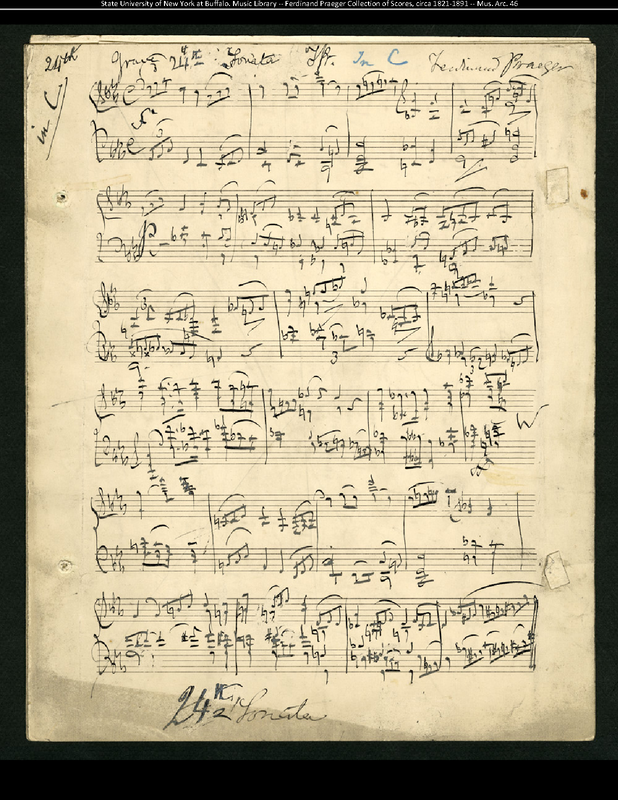 State University of New York at Buffalo. Music Library -- Ferdinand Praeger Collection of Scores, circa 1821-1891 -- Mus. Arc. 46
24th
in C
Grave 24th Sonata In C Ferdinand Praeger
24th Sonata